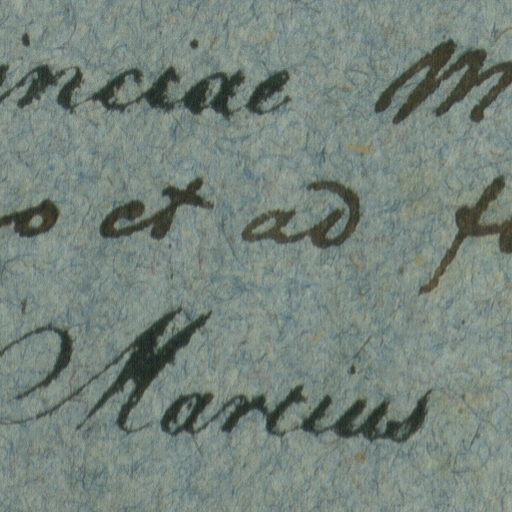 inciae M
o et ad fo
Martius